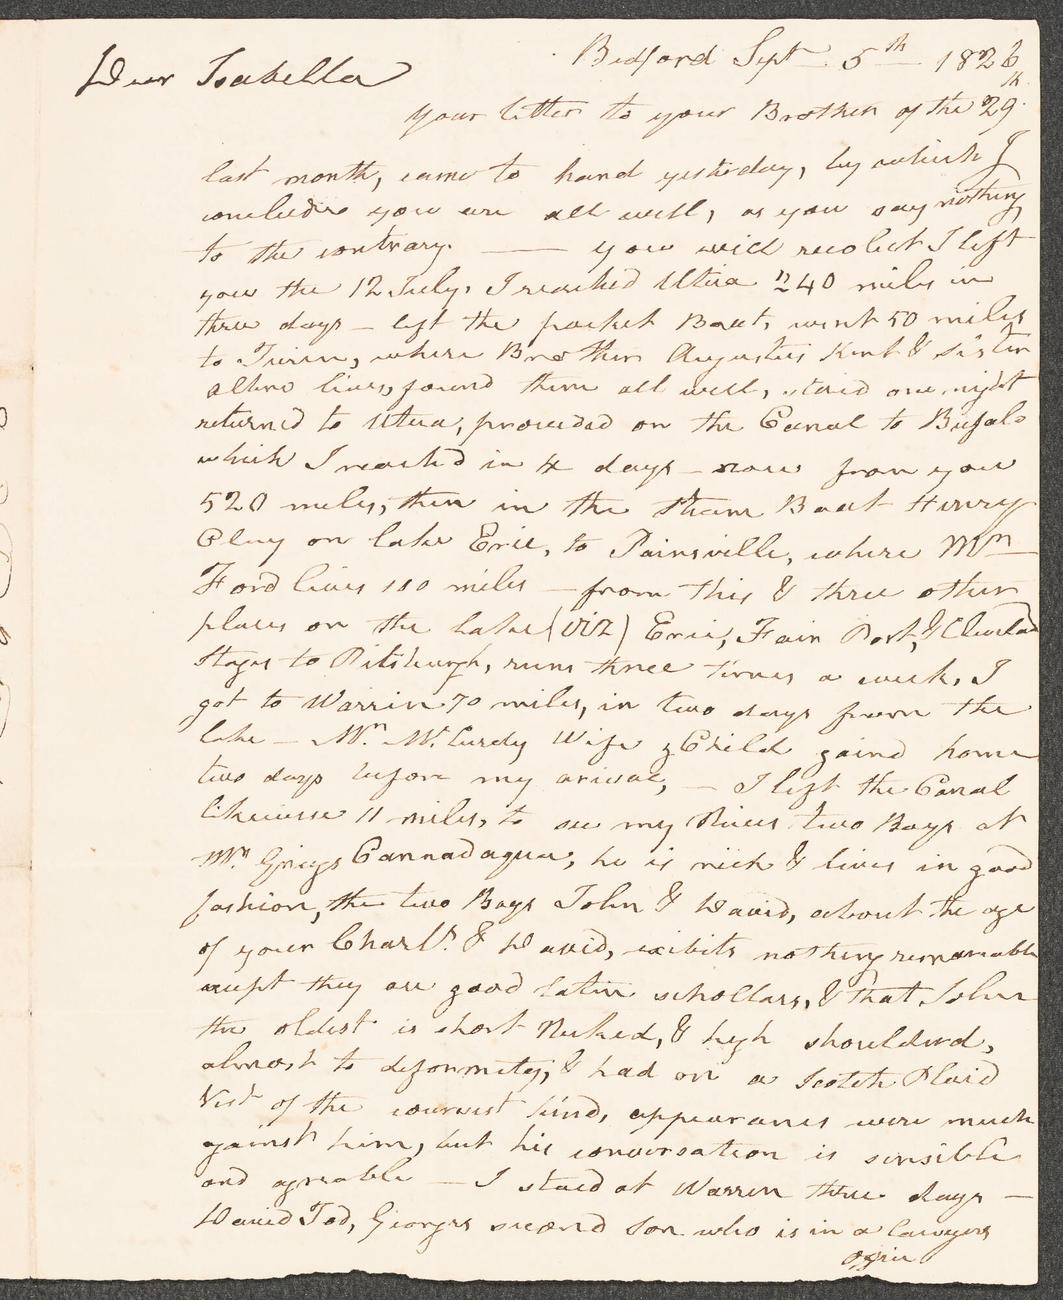 Bedford Sept 5th 1826
Dear Isabella
Your letter to your Brother of the 29th
last month, came to hand yesterday, by which I
conclude you are all well, as you say nothing
to the contrary. — you will recolect I left
you the 12 July. I reached Utica 240 miles in
three days — left the packet Boat, went 50 miles
to Turin, where Brother Augustus Kent & sister
altino lives, found them all well, staid one night
returned to Utica, proceeded on the Canal to Bufalo
which I reached in 4 days — now from you
520 miles, then in the Steam Boat Henry
Clay on lake Erie, to Painsville, where Mrs
Ford lives 110 miles — from this & three other
places on the lake (viz) Erie, Fair Port, & Cleveland
stages to Pitsburgh, runs three times a week, I
got to Warrin 70 miles, in two days from the
lake — Mr. McCurdy Wife & Child gaind home
two days before my arival, — I left the Canal
likewise 11 miles, to see my Nices two Boys at
Mr Grigs Cannadaqua, he is rich & lives in good
fashion, the two Boys John & David, about the age
of your Charls & David, exibits nothing remarkable
except they are good latin schollars, & that John
the oldest is short Necked, & high shoulderd,
almost to deformety, & had on a Scotch Plaid
Vest of the coursest kind, appearances were much
against him, but his conversation is sensible
and agreable — I staid at Warren three days —
David Tod, Georges second son who is in a lawyers
office